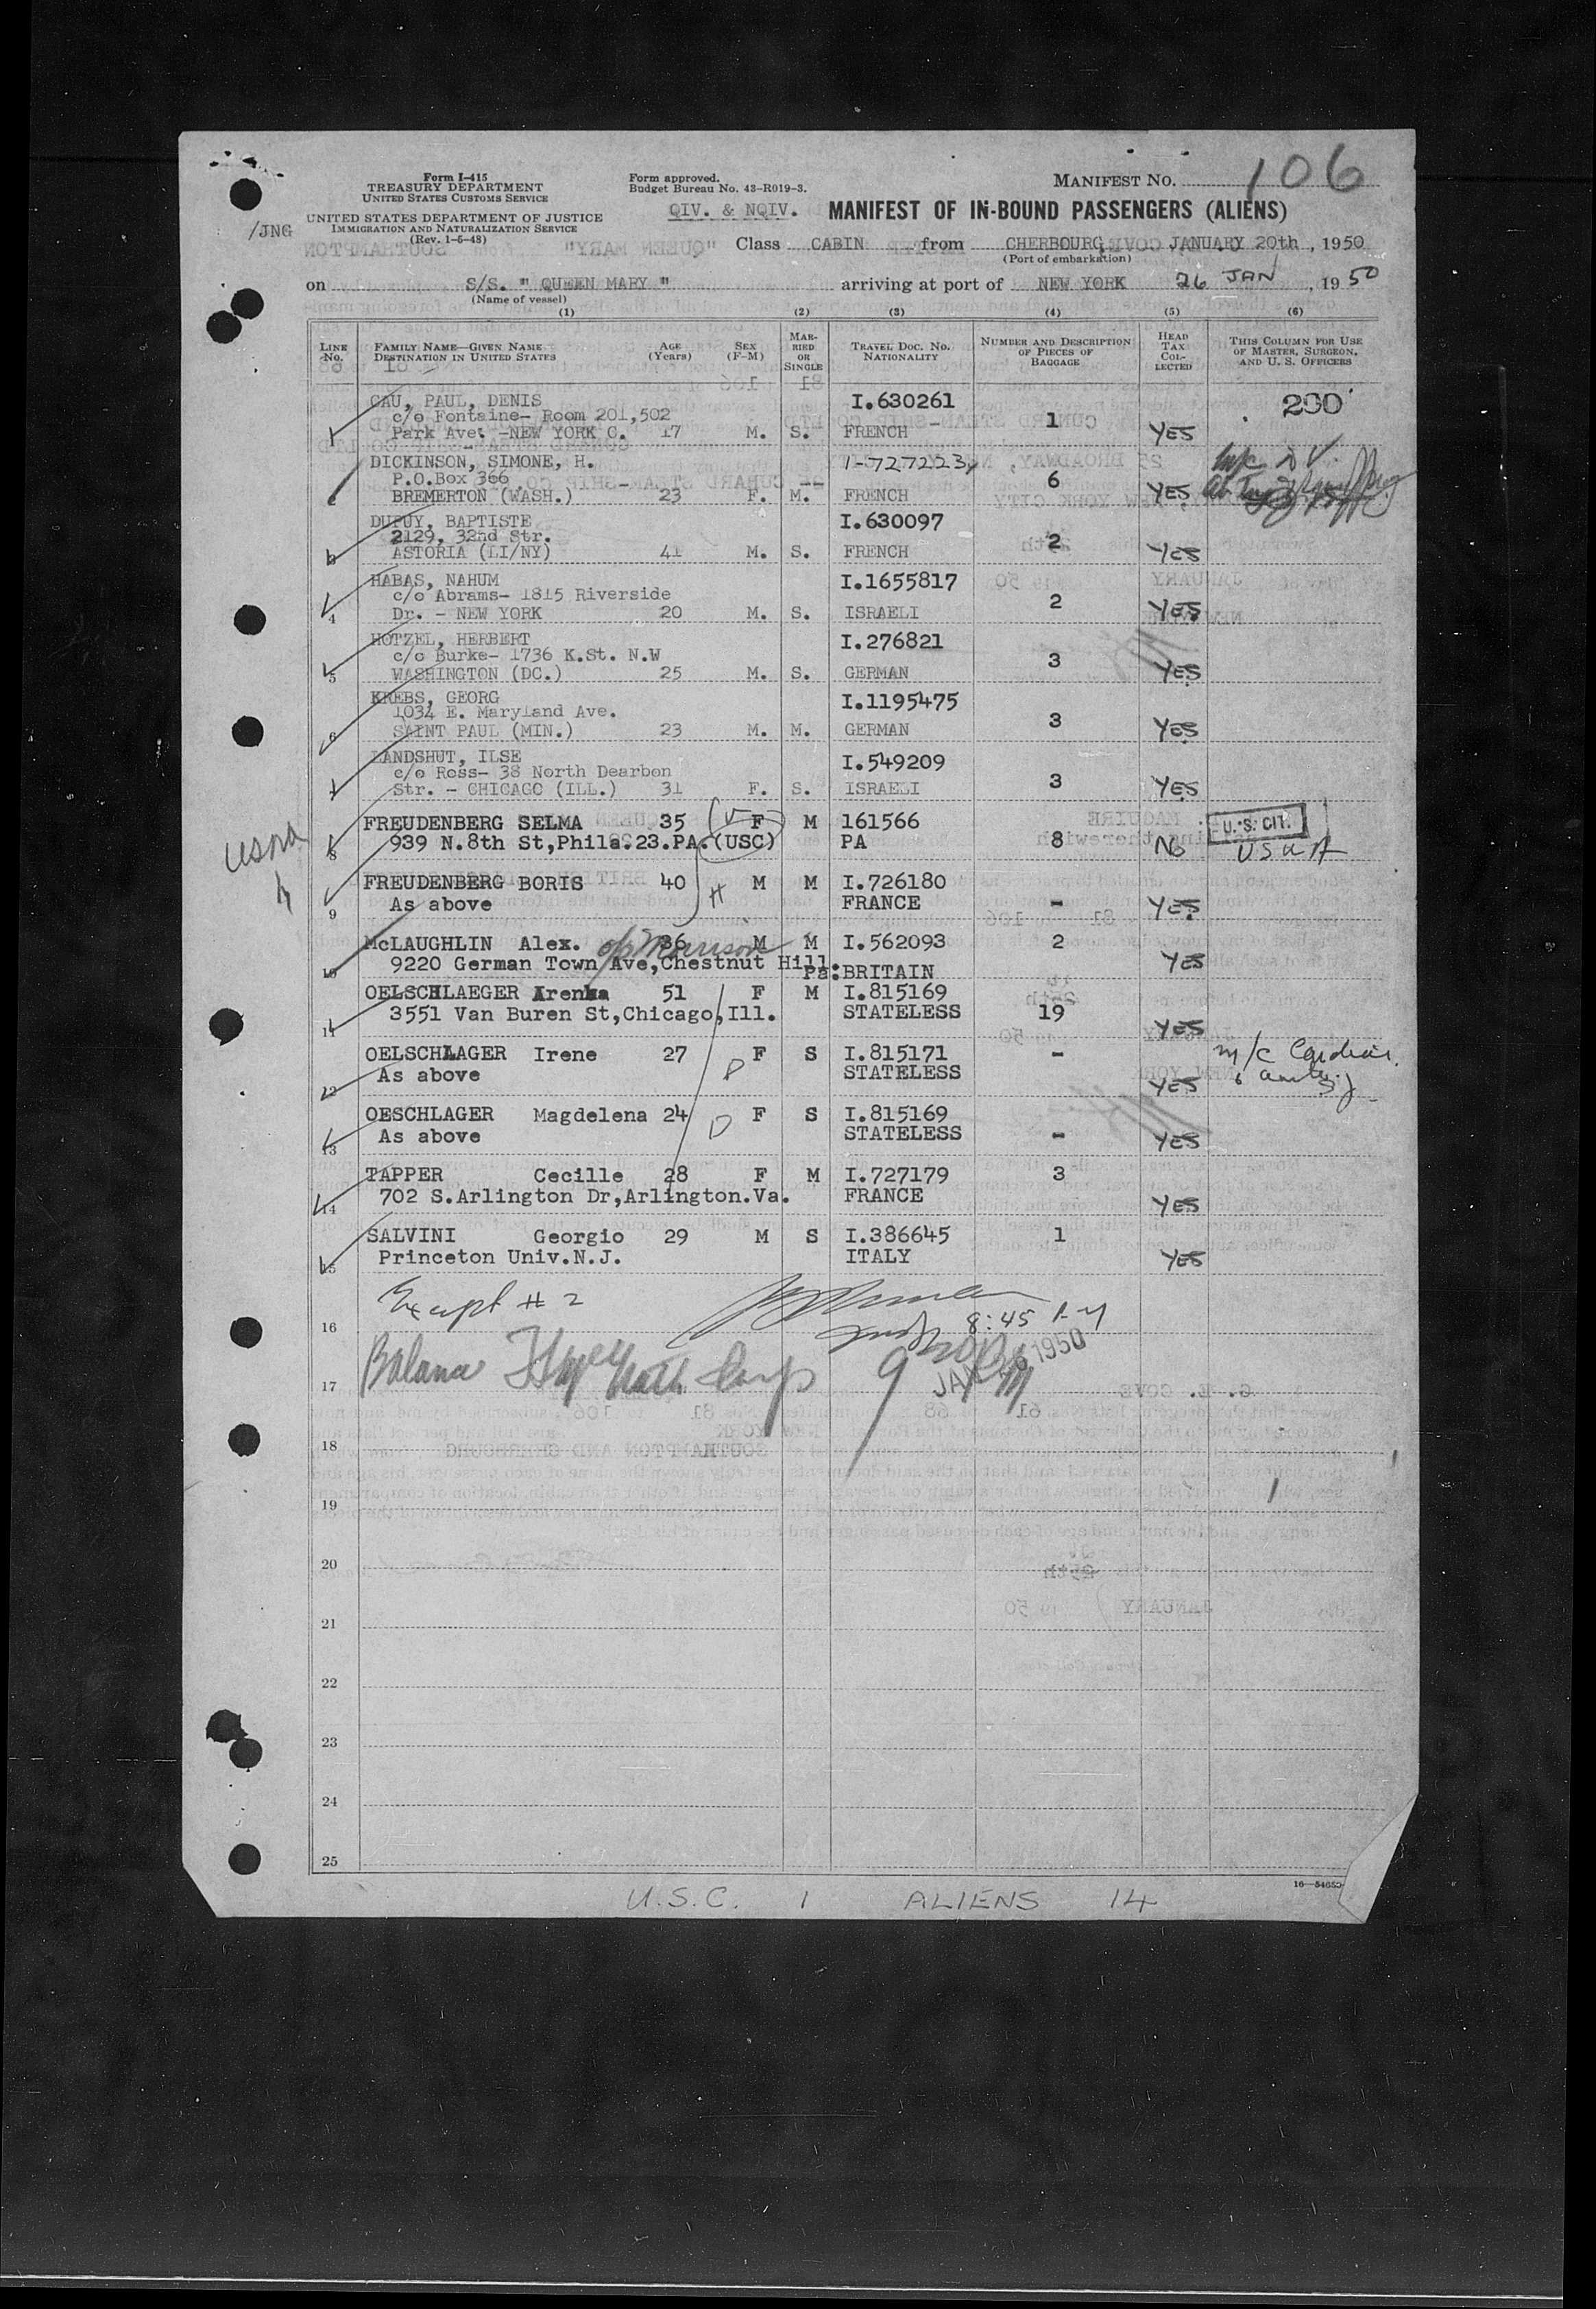 Form I-415
TREASURY DEPARTMENT
UNITED STATES CUSTOMS SERVICE
UNITED STATES DEPARTMENT OF JUSTICE
IMMIGRATION AND NATURALIZATION SERVICE
(Rev. 1-6-48)
/JNG
Form approved.
Budget Bureau No. 43-R019-3.
MANIFEST NO. 106
QIV. & NQIV. MANIFEST OF IN-BOUND PASSENGERS (ALIENS)
Class CABIN from CHERBOURG, JANUARY 20th, 1950
(Port of embarkation)
on S/S. " QUEEN MARY " arriving at port of NEW YORK 26 JAN, 1950
(Name of vessel)
(1) (2) (3) (4) (5) (6)
LINE NO. FAMILY NAME—GIVEN NAME DESTINATION IN UNITED STATES AGE (Years) SEX (F-M) MARRIED OR SINGLE TRAVEL DOC. NO. NATIONALITY NUMBER AND DESCRIPTION OF PIECES OF BAGGAGE HEAD TAX COLLECTED THIS COLUMN FOR USE OF MASTER, SURGEON, AND U. S. OFFICERS
CAU, PAUL, DENIS I.630261 200
c/o Fontaine- Room 201,502 1
1 Park Ave. -NEW YORK C. 17 M. S. FRENCH YES
DICKINSON, SIMONE, H. 1-727223
P.O.Box 366 6
BREMERTON (WASH.) 23 F. M. FRENCH YES
DUPUY, BAPTISTE I.630097
2129, 32nd Str. 2
3 ASTORIA (LI/NY) 41 M. S. FRENCH YES
HABAS, NAHUM I.1655817
c/o Abrams- 1815 Riverside 2
4 Dr. - NEW YORK 20 M. S. ISRAELI YES
HOTZEL, HERBERT I.276821
c/o Burke- 1736 K.St. N.W 3
5 WASHINGTON (DC.) 25 M. S. GERMAN YES
KREBS, GEORG I.1195475
1034 E. Maryland Ave. 3
6 SAINT PAUL (MIN.) 23 M. M. GERMAN YES
LANDSHUT, ILSE I.549209
c/o Ross- 38 North Dearbon 3
Str. - CHICAGO (ILL.) 31 F. S. ISRAELI YES
FREUDENBERG SELMA 35 F M 161566 U.S. CIT.
8 939 N.8th St,Phila.23.PA.(USC) PA 8 No USNA
FREUDENBERG BORIS 40 M M I.726180
9 As above FRANCE - YES
McLAUGHLIN Alex. 36 M M I.562093 2
10 9220 German Town Ave,Chestnut Hill. Pa: BRITAIN YES
OELSCHLAEGER Irenka 51 F M I.815169
11 3551 Van Buren St,Chicago,Ill. STATELESS 19 YES
OELSCHLAGER Irene 27 F S I.815171 -
12 As above STATELESS YES
OESCHLAGER Magdelena 24 F S I.815169
13 As above STATELESS - YES
TAPPER Cecille 28 F M I.727179 3
14 702 S.Arlington Dr,Arlington.Va. FRANCE YES
SALVINI Georgio 29 M S I.386645 1
15 Princeton Univ.N.J. ITALY YES
Except # 2
16 8:45
17 JAN 26 1950
18
19
20
21
22
23
24
25
U.S.C. 1 ALIENS 14